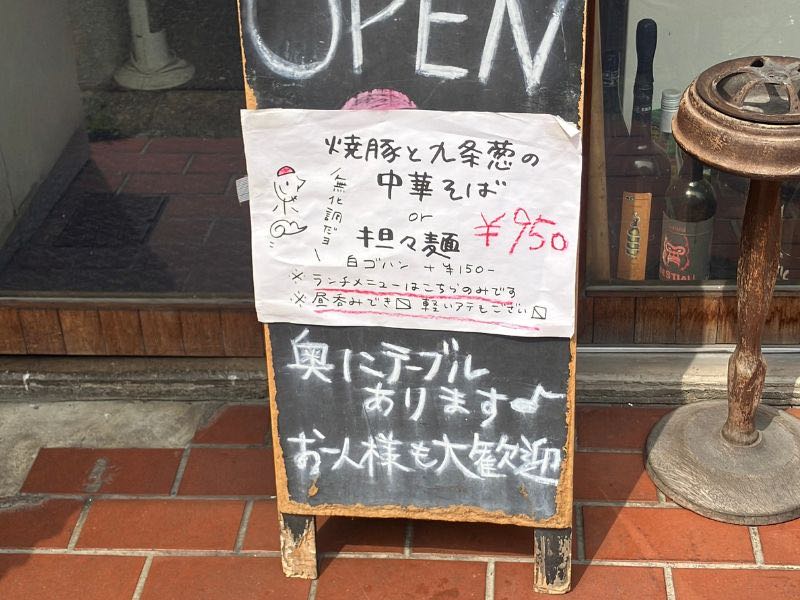 OPEN
焼豚と九条葱の
中華そば
無化調だヨ
or
担々麺
¥950
白ゴハン +¥150-
※ランチメニューはこちらのみです
※昼呑みでき〼 軽いアテもござい〼
奥にテーブル
あります♪
お一人様も大歓迎